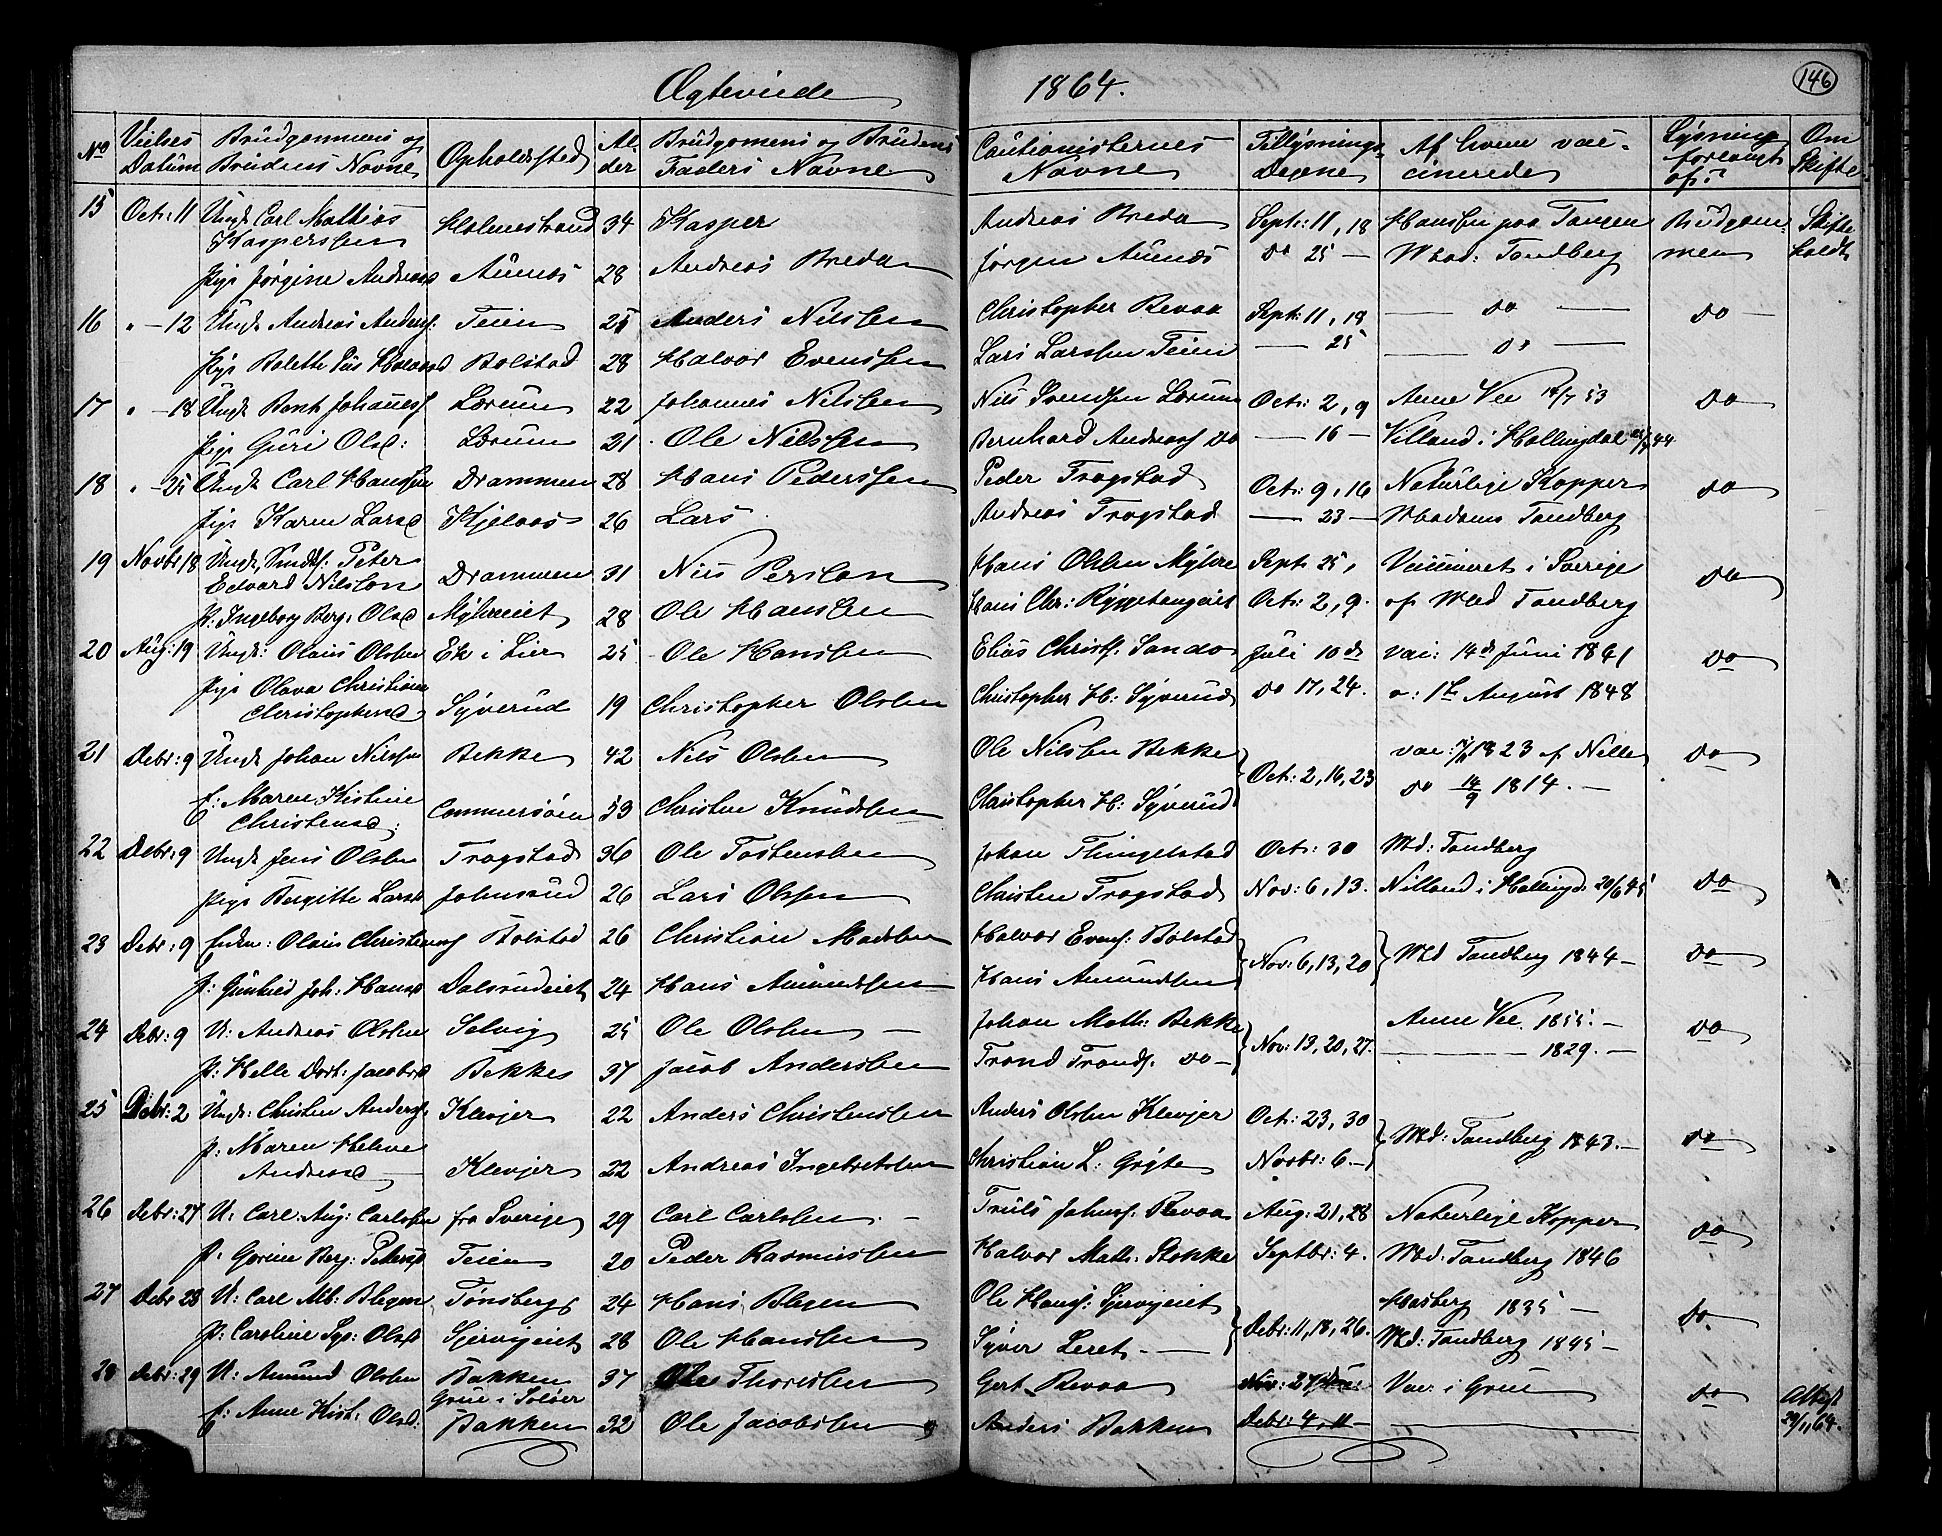 Ægteviede 1864. 146
No Vielses Datum Brudgommens og Brudens Navne Opholdssted Alder Brudgomens og Brudens Faders Navne Cautionisternes Navne Tillysnings Dagene Af hvem vaccinerede Lysning forlangt af: Om Skifte
15 Octr: 11 Ungk Carl Mathias Kaspersen Holmestrand 34 Kasper Andreas Breda Septr: 11, 18 Hansen paa Tangen Brudgom- Skifte
Pige Jørgine Andreasd Aunæs 28 Andreas Breda Jørgen Aunæs do 25 — Mad: Tandberg men holdt
16 " — 12 Ungk Andreas Anders: Teien 25 Anders Nilssen Christopher Revaa Sept: 11, 18 — do — do —
Pige Bolette Bolstad 28 Halvor Evenssen Lars Larssen Teien — 25 — do —
17 " — 18 Ungk Bent Johannesf Lærum 22 Johannes Nilssen Nils Svendsen Lærum Octr: 2, 9 Anne Vee 53 do
Pige Guri Olsd: Lærum 21 Ole Nilssen Bernhard Andreasf do — 16 — Villand i Hallingdal 44
18 " — 25 Ungk Carl Hanssen Drammen 28 Hans Pederssen Peder Tragstad Octr: 9, 16 Naturlige Kopper do
Pige Karen Larsd Kjelaas 26 Lars Andreas Tragstad — 23 — Madams Tandberg
19 Novbr 18 Ungk Smedsf. Peter
Edvard Nilsson Drammen 31 Nils Persson Hans Olsen Myhre Sept 25, Vaccineret i Sverige do
P. Ingeborg Berg: Olsd Myhreiet 28 Ole Hanssen Hans Chr: Octr: 2, 9. af Mad Tandberg
20 Aug: 19 Ungk: Olaus Olssen Ek i Lier 25 Ole Hanssen Elias Christf. Sando Juli 10de vac: 14de Juni 1841 do
Pige Olava Christine
Christophersd Syverud 19 Christopher Olssen Christopher H: Syverud do 17, 24. v: 1te August 1848
21 Debr: 9 Ungk Johan Nilssen Bekke 42 Nils Olsen Ole Nilssen Bekke Oct: 2, 16, 23 vac: 1823 af Nille do
E: Maren Kistine
Christensd: Commersøen 53 Christen Knudssen Christopher H: Syverud do 14/9 1814. —
22 Debr: 9 Ungk Jens Olssen Tragstad 36 Ole Tostenssen Johan Thingelstad Octr: 30 Md: Tandberg
Pige Birgitte Larsd Johnsrud 26 Lars Olssen Christen Tragstad Nov: 6, 13. Nilland i Hallingd. 20/6 45 do
23 Debr: 9 Enkm: Olaus Christiansf Bolstad 26 Christian Madssen Halvor Evensf: Bolstad Nov: 6, 13, 20 Md Tandberg 1844 — do
P: Gunhild Joh: Hansd Dalsrudeiet 24 Hans Amundssen Hans Amundssen
24 Debr: 9 U: Andreas Olssen Selvig 25 Ole Olssen — Johan Math: Bekke Nov: 13, 20, 27. Anne Vee 1855. — do
P: Helle Dort: Jacobsd Bekkes 37 Jacob Anderssen Trond Trondsf. do — — 1829. —
25 Debr: 2 Ungk: Christen Andersf Klevjer 22 Anders Christenssen Anders Olssen Klevjer Octr: 23, 30 Md: Tandberg 1843. — do
P: Maren Helene
Andreasd — Klevjer 22 Andreas Ingebretssen Christian L: Gryte Novbr: 6 —
26 Debr: 27 U: Carl Aug: Carlssen fra Sverige 29 Carl Carlssen. — Truls Johnsf. Revaa Aug: 21, 28 Naturlige Kopper do
P. Gorine Berg: Pedersd Teien 20 Peder Rasmussen Halvor Math: Stokke Septbr: 4. Md: Tandberg 1846
27 Debr 28 U: Carl Alb: Blegen Tønsberg 24 Hans Blegen Ole Hansf: Gjervigeiet Debr: 11, 18, 26. Aasberg 1835 — do.
P: Caroline Sop: Olsd Gjervigeiet 28 Ole Hanssen Syver Leret. — Md: Tandberg 1845 —
28 Debr: 29 U: Amund Olssen Bakken 37 Ole Thoressen Gert Revaa Nov: 27 Vac: i Grue do Attest
Grue i Soløer
E: Anne Kist: Olsd: Bakken 32 Ole Jacobssen Anders Bakken Debr: 4, 11 — — 29/11 64.